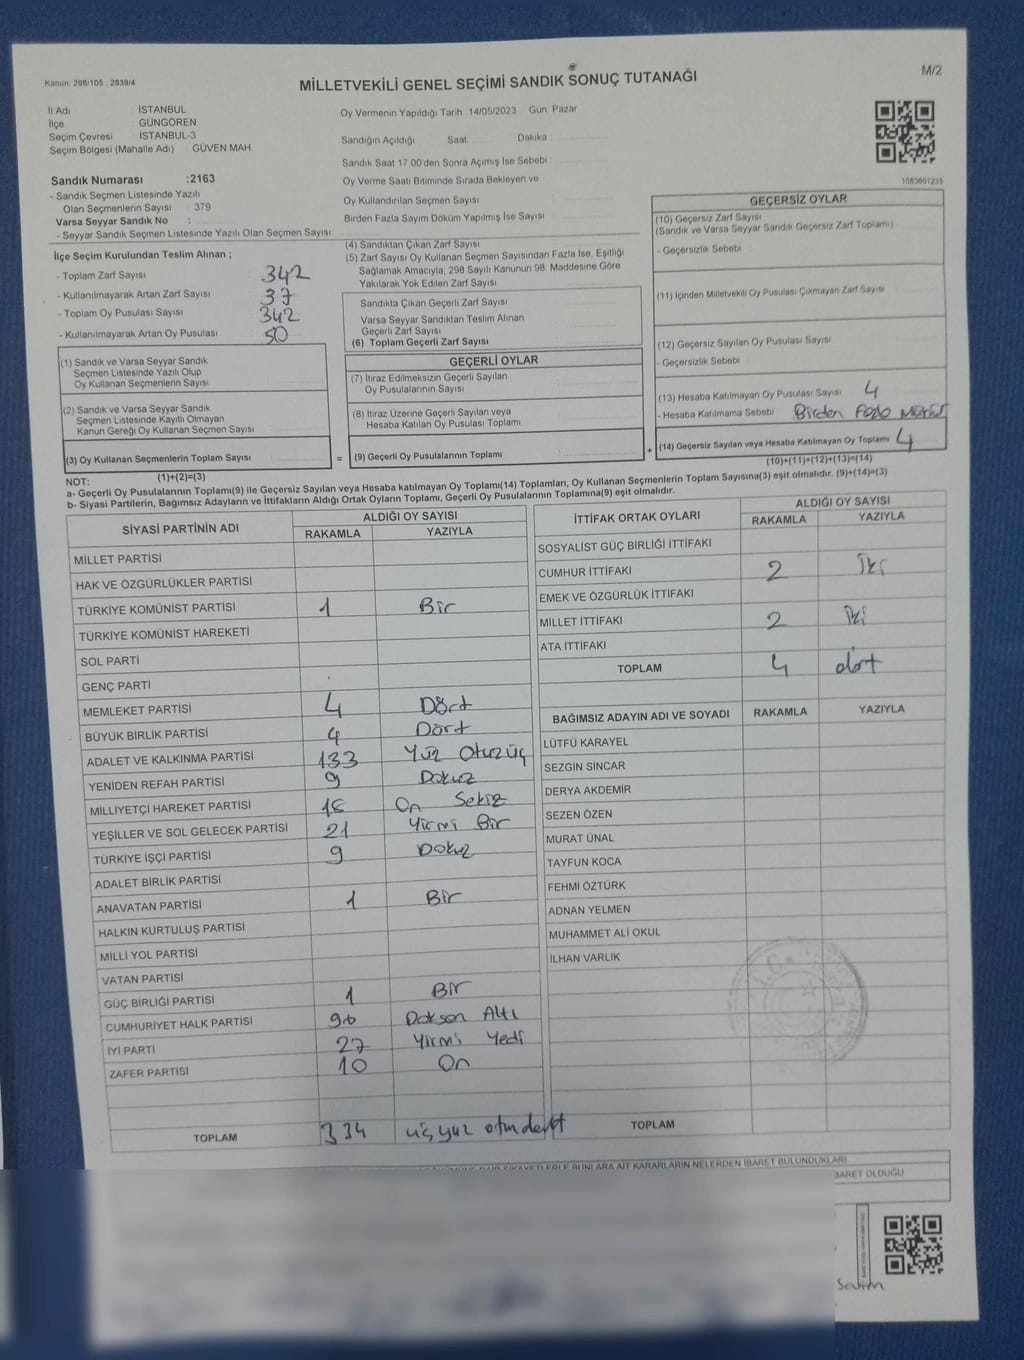 Kanun: 298/105 , 2839/4
MİLLETVEKİLİ GENEL SEÇİMİ SANDIK SONUÇ TUTANAĞI
M/2
İl Adı : İSTANBUL
İlçe : GÜNGÖREN
Seçim Çevresi : İSTANBUL-3
Seçim Bölgesi (Mahalle Adı) : GÜVEN MAH.
Sandık Numarası :2163
- Sandık Seçmen Listesinde Yazılı
Olan Seçmenlerin Sayısı : 379
Varsa Seyyar Sandık No :
- Seyyar Sandık Seçmen Listesinde Yazılı Olan Seçmen Sayısı:
Oy Vermenin Yapıldığı Tarih :14/05/2023 Gün: Pazar
Sandığın Açıldığı Saat: Dakika:
Sandık Saat 17.00'den Sonra Açılmış İse Sebebi:
Oy Verme Saati Bitiminde Sırada Bekleyen ve
Oy Kullandırılan Seçmen Sayısı:
Birden Fazla Sayım Döküm Yapılmış İse Sayısı:
1083651235
İlçe Seçim Kurulundan Teslim Alınan ;
- Toplam Zarf Sayısı : 342
- Kullanılmayarak Artan Zarf Sayısı : 37
- Toplam Oy Pusulası Sayısı : 342
- Kullanılmayarak Artan Oy Pusulası : 50
(1) Sandık ve Varsa Seyyar Sandık
Seçmen Listesinde Yazılı Olup
Oy Kullanan Seçmenlerin Sayısı:
(2) Sandık ve Varsa Seyyar Sandık
Seçmen Listesinde Kayıtlı Olmayan
Kanun Gereği Oy Kullanan Seçmen Sayısı:
(3) Oy Kullanan Seçmenlerin Toplam Sayısı :
(1)+(2)=(3)
(4) Sandıktan Çıkan Zarf Sayısı :
(5) Zarf Sayısı Oy Kullanan Seçmen Sayısından Fazla İse, Eşitliği
Sağlamak Amacıyla; 298 Sayılı Kanunun 98. Maddesine Göre
Yakılarak Yok Edilen Zarf Sayısı:
Sandıkta Çıkan Geçerli Zarf Sayısı :
Varsa Seyyar Sandıktan Teslim Alınan
Geçerli Zarf Sayısı :
(6) Toplam Geçerli Zarf Sayısı :
GEÇERLİ OYLAR
(7) İtiraz Edilmeksizin Geçerli Sayılan
Oy Pusulalarının Sayısı :
(8) İtiraz Üzerine Geçerli Sayılan veya
Hesaba Katılan Oy Pusulası Toplamı :
= (9) Geçerli Oy Pusulalarının Toplamı :
GEÇERSİZ OYLAR
(10) Geçersiz Zarf Sayısı
(Sandık ve Varsa Seyyar Sandık Geçersiz Zarf Toplamı)
- Geçersizlik Sebebi :
(11) İçinden Milletvekili Oy Pusulası Çıkmayan Zarf Sayısı :
(12) Geçersiz Sayılan Oy Pusulası Sayısı :
- Geçersizlik Sebebi :
(13) Hesaba Katılmayan Oy Pusulası Sayısı : 4
- Hesaba Katılmama Sebebi : Birden
+ (14) Geçersiz Sayılan veya Hesaba Katılmayan Oy Toplamı : 4
(10)+(11)+(12)+(13)=(14)
NOT:
a- Geçerli Oy Pusulalarının Toplamı(9) ile Geçersiz Sayılan veya Hesaba katılmayan Oy Toplamı(14) Toplamları, Oy Kullanan Seçmenlerin Toplam Sayısına(3) eşit olmalıdır. (9)+(14)=(3)
b- Siyasi Partilerin, Bağımsız Adayların ve İttifakların Aldığı Ortak Oyların Toplamı, Geçerli Oy Pusulalarının Toplamına(9) eşit olmalıdır.
SİYASİ PARTİNİN ADI ALDIĞI OY SAYISI
RAKAMLA YAZIYLA
MİLLET PARTİSİ
HAK VE ÖZGÜRLÜKLER PARTİSİ
TÜRKİYE KOMÜNİST PARTİSİ 1 Bir
TÜRKİYE KOMÜNİST HAREKETİ
SOL PARTİ
GENÇ PARTİ
MEMLEKET PARTİSİ 4 Dört
BÜYÜK BİRLİK PARTİSİ 4 Dört
ADALET VE KALKINMA PARTİSİ 133 Yüz Otuzüç
YENİDEN REFAH PARTİSİ 9 Dokuz
MİLLİYETÇİ HAREKET PARTİSİ 18 On Sekiz
YEŞİLLER VE SOL GELECEK PARTİSİ 21 Yirmi Bir
TÜRKİYE İŞÇİ PARTİSİ 9 Dokuz
ADALET BİRLİK PARTİSİ
ANAVATAN PARTİSİ 1 Bir
HALKIN KURTULUŞ PARTİSİ
MİLLİ YOL PARTİSİ
VATAN PARTİSİ
GÜÇ BİRLİĞİ PARTİSİ 1 Bir
CUMHURİYET HALK PARTİSİ 96 Doksan Altı
İYİ PARTİ 27 Yirmi Yedi
ZAFER PARTİSİ 10 On
TOPLAM 334
İTTİFAK ORTAK OYLARI ALDIĞI OY SAYISI
RAKAMLA YAZIYLA
SOSYALİST GÜÇ BİRLİĞİ İTTİFAKI
CUMHUR İTTİFAKI 2 İki
EMEK VE ÖZGÜRLÜK İTTİFAKI
MİLLET İTTİFAKI 2 İki
ATA İTTİFAKI
TOPLAM 4 dört
BAĞIMSIZ ADAYIN ADI VE SOYADI RAKAMLA YAZIYLA
LÜTFÜ KARAYEL
SEZGİN SİNCAR
DERYA AKDEMİR
SEZEN ÖZEN
MURAT ÜNAL
TAYFUN KOCA
FEHMİ ÖZTÜRK
ADNAN YELMEN
MUHAMMET ALİ OKUL
İLHAN VARLIK
TOPLAM
BUNLARA AİT KARARLARIN NELERDEN İBARET BULUNDUKLARI
İBARET OLDUĞU